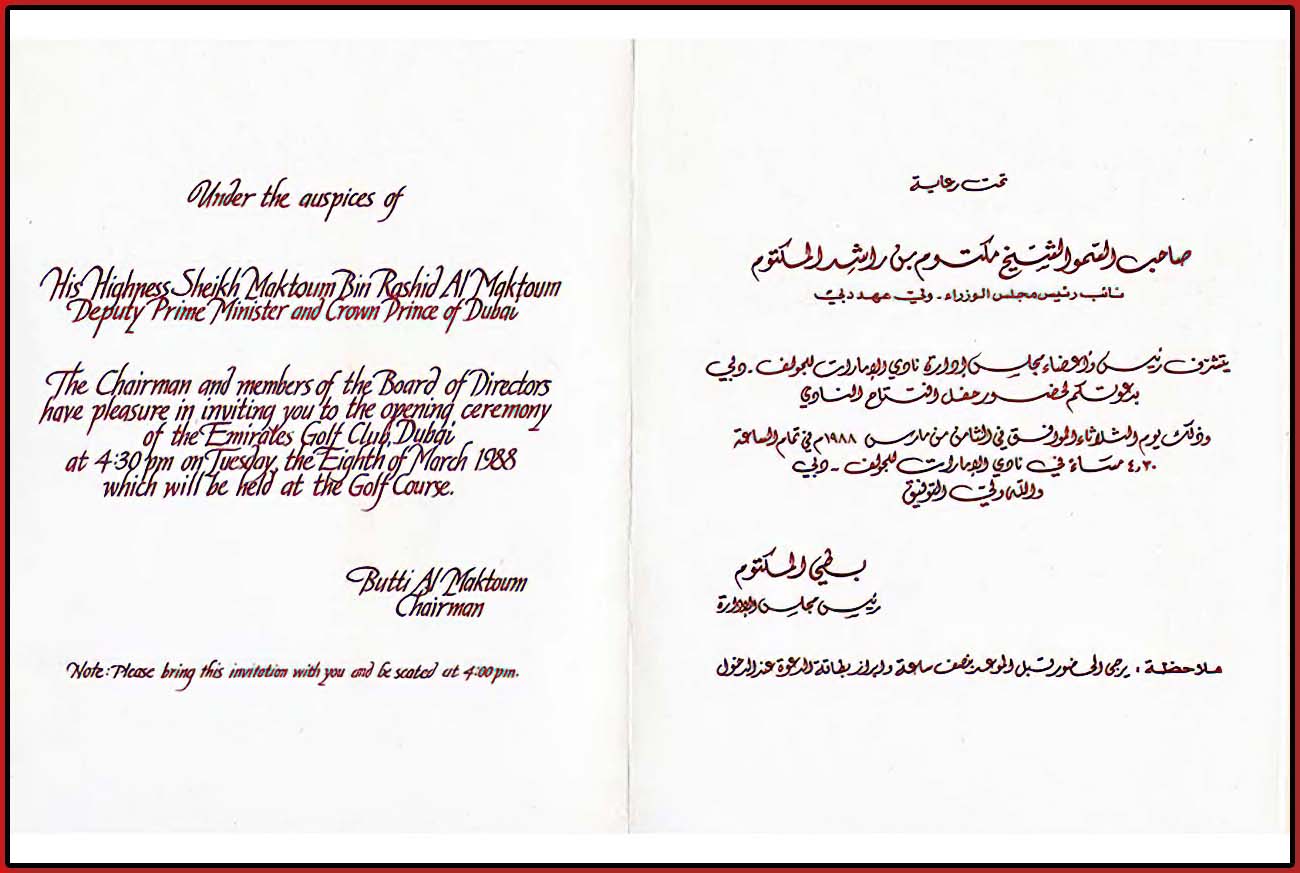 Under the auspices of
His Highness Sheikh Maktoum Bin Rashid Al Maktoum
Deputy Prime Minister and Crown Prince of Dubai
The Chairman and members of the Board of Directors
have pleasure in inviting you to the opening ceremony
of the Emirates Golf Club, Dubai
at 4:30 pm on Tuesday, the Eighth of March 1988
which will be held at the Golf Course.
Butti Al Maktoum
Chairman
Note: Please bring this invitation with you and be seated at 4:00 pm.
تحت رعاية
صاحب السمو الشيخ مكتوم بن راشد المكتوم
نائب رئيس مجلس الوزراء - ولي عهد دبي
يتشرف رئيس وأعضاء مجلس إدارة نادي الإمارات للجولف - دبي
بدعوتكم لحضور حفل افتتاح النادي
وذلك يوم الثلاثاء الموافق في الثامن من مارس ١٩٨٨م في تمام الساعة
٤,٣٠ مساء في نادي الإمارات للجولف - دبي
والله ولي التوفيق
بطي المكتوم
رئيس مجلس الإدارة
ملاحظة : يرجى الحضور قبل الموعد بنصف ساعة وإبراز بطاقة الدعوة عند الدخول